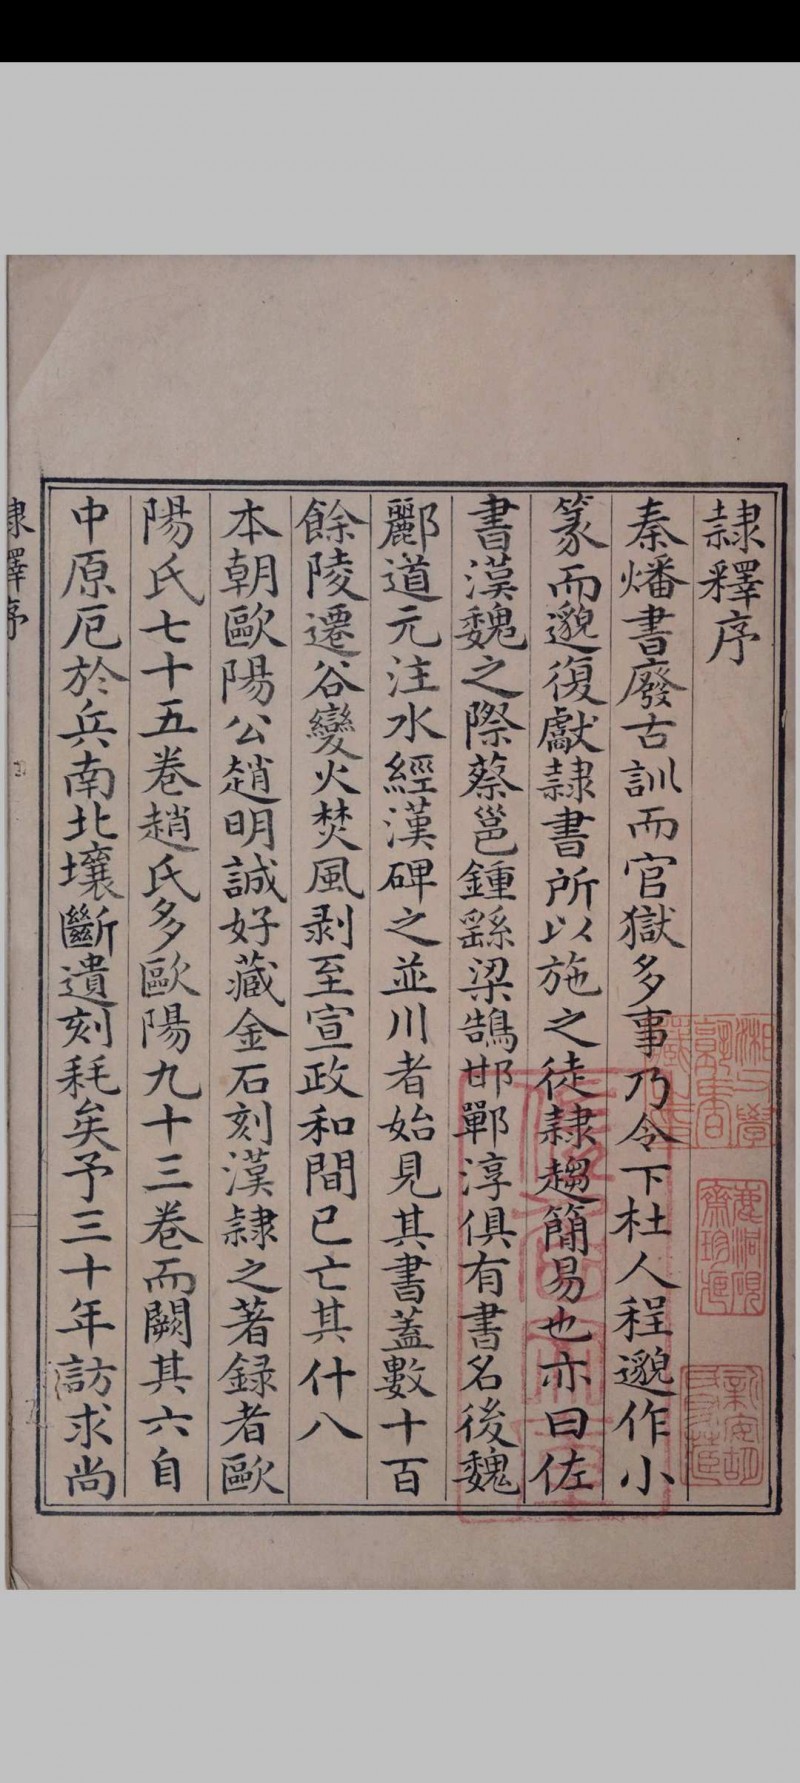 隸釋序
秦燔書廢古訓而官獄多事乃令下杜人程邈作小
篆而邈復獻隸書所以施之徒隸趨簡易也亦曰佐
書漢魏之際蔡邕鍾繇梁鵠邯鄲淳俱有書名後魏
酈道元注水經漢碑之並川者始見其書蓋數十百
餘陵遷谷變火焚風剥至宣政和間已亡其什八
本朝歐陽公趙明誠好藏金石刻漢隸之著録者歐
陽氏七十五卷趙氏多歐陽九十三卷而闕其六自
中原厄於兵南北壤斷遺刻耗矣予三十年訪求尚
隸釋序